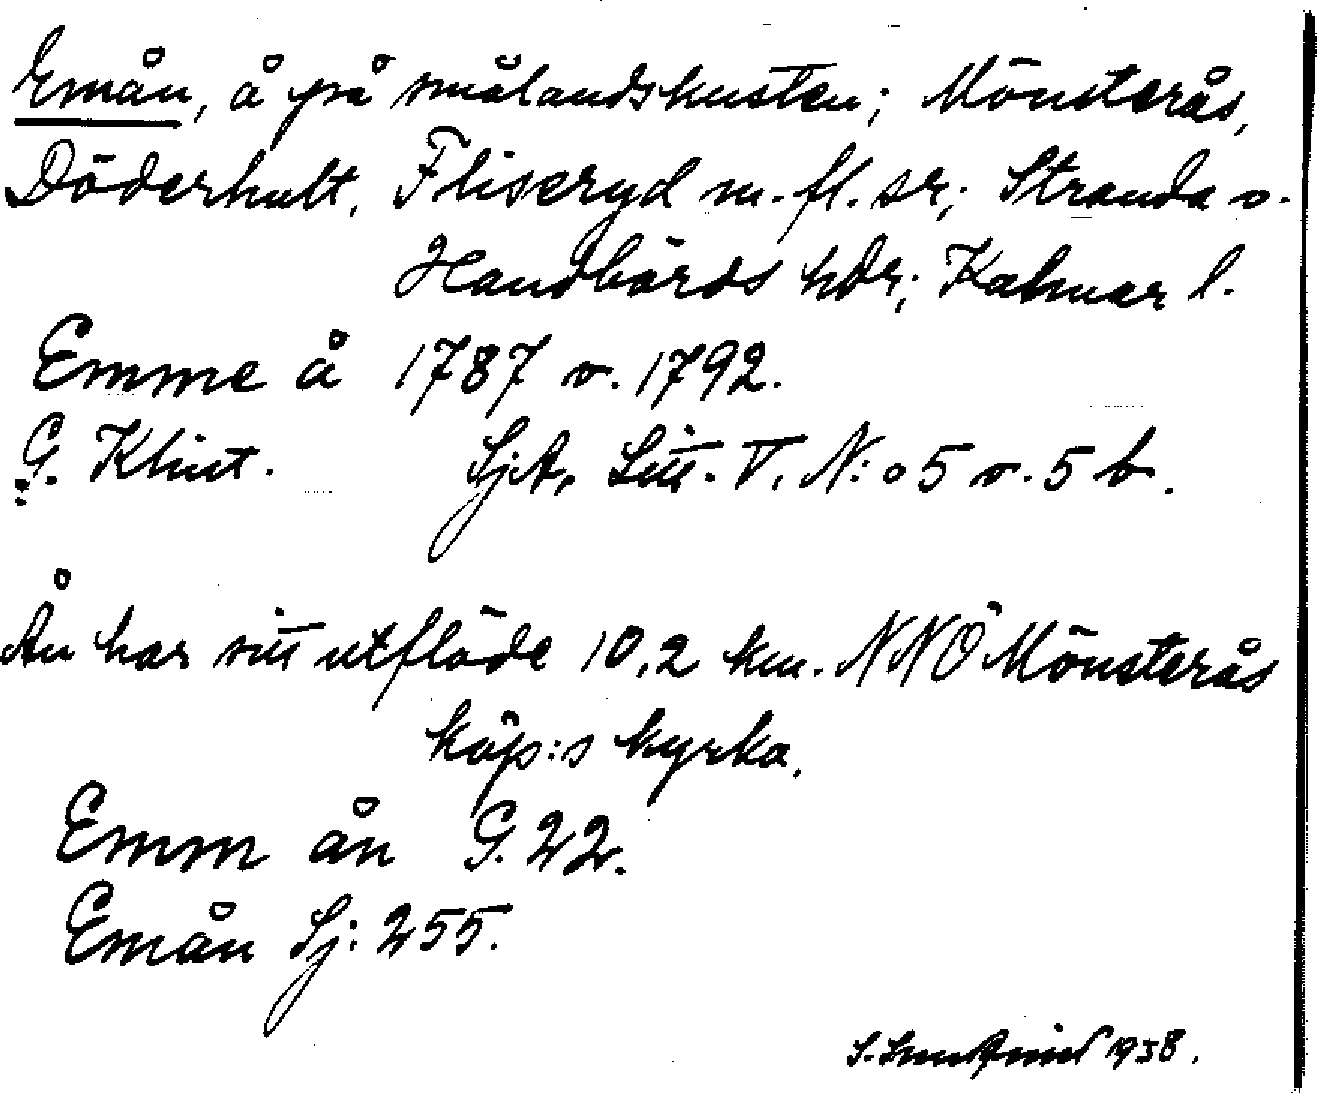 Emån, å på smålandskusten; Mönsterås,
Döderhult, Fliseryd m. fl. sr; Stranda o.
Handbörds hdr; Kalmar l.
Emme å 1787 o. 1792.
G. Klint. SjA, Litt. V, N:o 5 o. 5 b.
Ån har sitt utflöde 10,2 km. NNÖ Mönsterås
köp:s kyrka.
Emm ån G. 22.
Emån Sj: 255.
S. 1938.